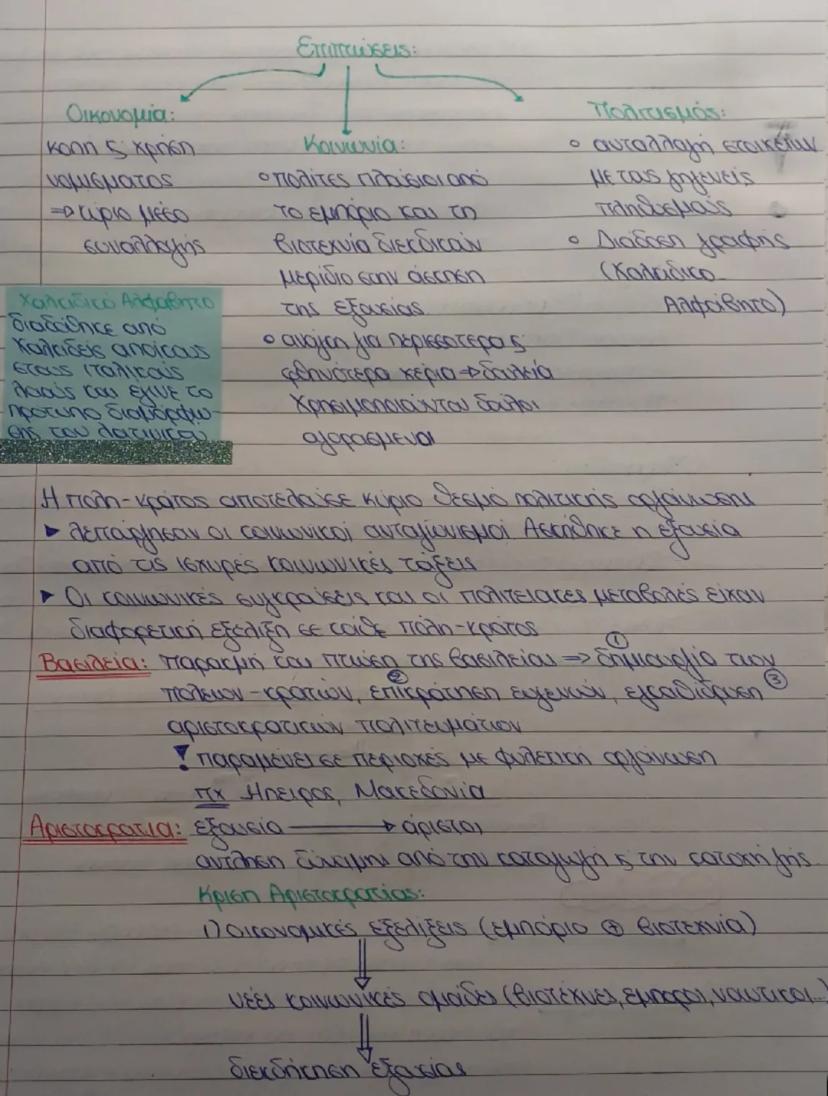 Επιπτώσεις:
Οικονομία:
κοπή ς χρήση
νομίσματος
⇒ κύριο μέσο
συναλλαγής
Κοινωνία:
ο πολίτες πλούσιοι από
το εμπόριο και τη
βιοτεχνία διεκδικούν
μερίδιο στην άσκηση
της εξουσίας
ο ανάγκη για περισσότερα ς
φθηνότερα χέρια → δουλεία
Χρησιμοποιούνται δούλοι
αγορασμένοι
Πολιτισμός:
ο ανταλλαγή στοιχείων
με τους γηγενείς
πληθυσμούς
ο Διάδοση γραφής
(Χαλκιδικό
Αλφάβητο)
Χαλκιδικό Αλφάβητο
διαδόθηκε από
Χαλκιδείς αποίκους
στους ιταλικούς
λαούς και έγινε το
πρότυπο διαμόρφω-
σης του λατινικού
Η πόλη-κράτος αποτελούσε κύριο θεσμό πολιτικής οργάνωσης
▸ λειτούργησαν οι κοινωνικοί ανταγωνισμοί Ασκήθηκε η εξουσία
από τις ισχυρές κοινωνικές τάξεις
▸ Οι κοινωνικές συγκρούσεις και οι πολιτειακές μεταβολές είχαν
διαφορετική εξέλιξη σε κάθε πόλη-κράτος
Βασιλεία: παρακμή και πτώση της βασιλείας ⇒ ① δημιουργία των
πόλεων-κρατών, ② επικράτηση ευγενών, εγκαθίδρυση ③
αριστοκρατικών πολιτευμάτων
! παραμένει σε περιοχές με φυλετική οργάνωση
πχ Ήπειρος, Μακεδονία
Αριστοκρατία: εξουσία → άριστοι
αντληση δύναμης από την καταγωγή ς την κατοχή γής
Κρίση Αριστοκρατίας:
1) οικονομικές εξελίξεις (εμπόριο ⊕ βιοτεχνία)
⇓
νέες κοινωνικές ομάδες (βιοτέχνες, έμποροι, ναυτικοί...)
⇓
διεκδίκηση εξουσίας